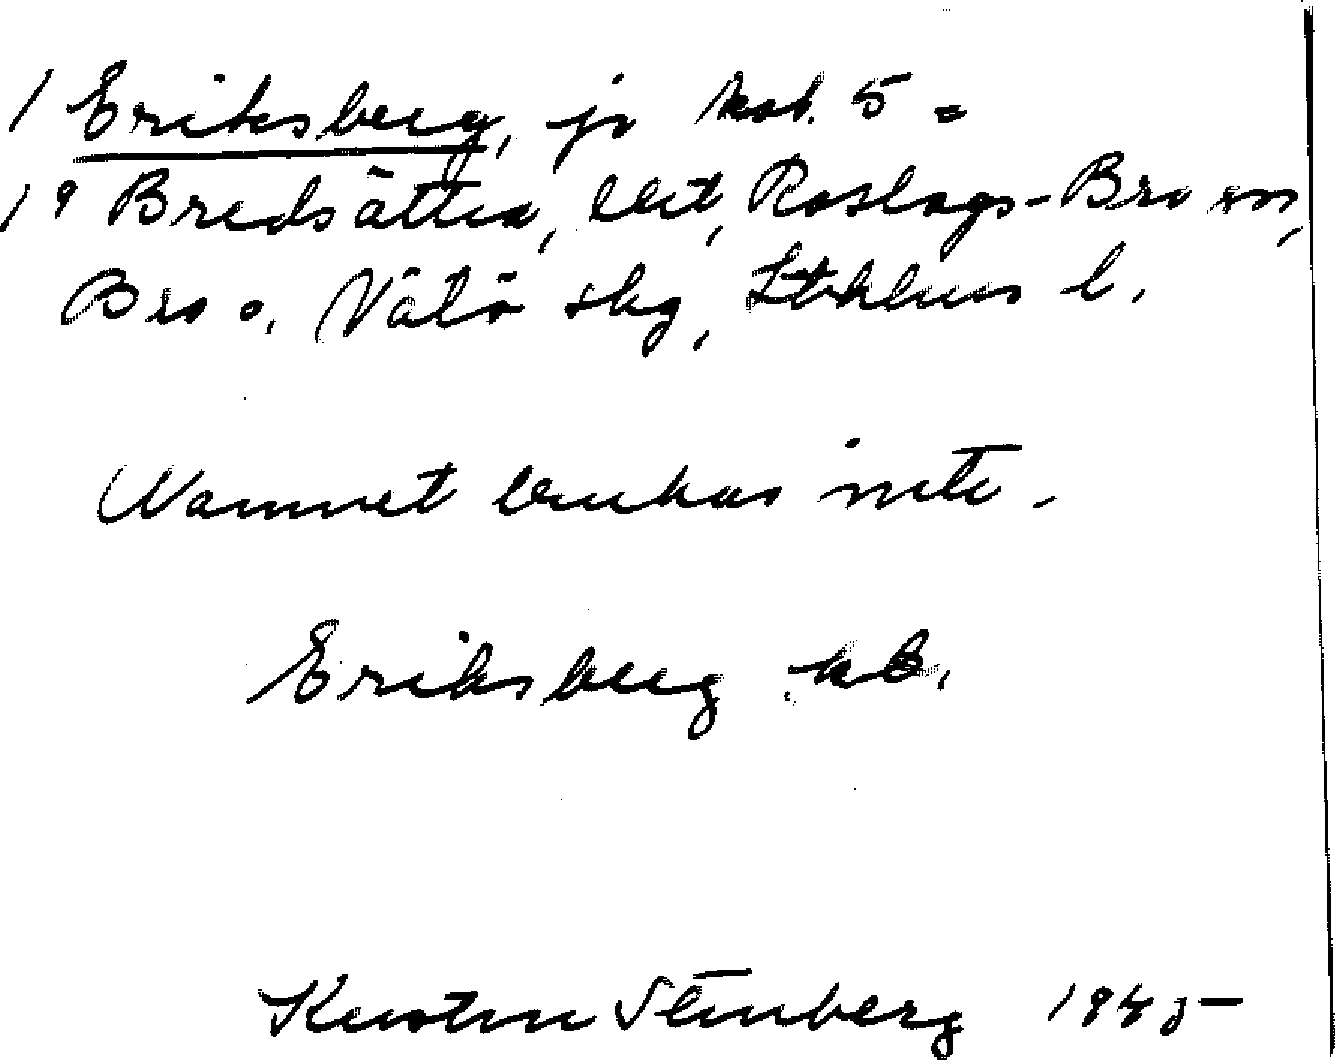 1 Eriksberg, jr kat. 5 =
19 Bredsätten, Roslags-Bro sn,
Bro o. Vätö skg, Sthlms l.
Namnet brukas inte.
Eriksberg
Kerstin Stenberg 1945